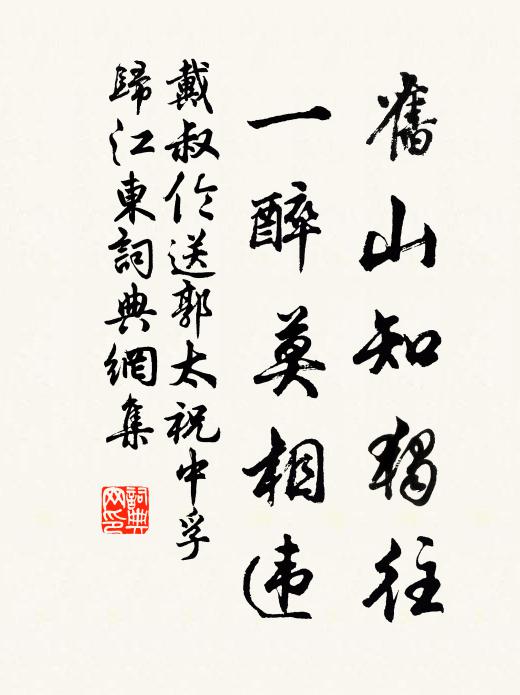 舊山知獨往
一醉莫相违
戴叔伦送郭太祝中孚
歸江東詞典網集
詞典
网印